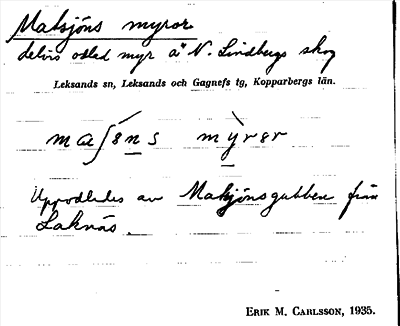 Matsjöns myror
delvis odlad myr å N. Lindbergs skog
Leksands sn, Leksands och Gagnefs tg, Kopparbergs län.
maʃɵns myrɵr
Uppodlades av Matsjönsgubben från
Laknäs.
ERIK M. CARLSSON, 1935.